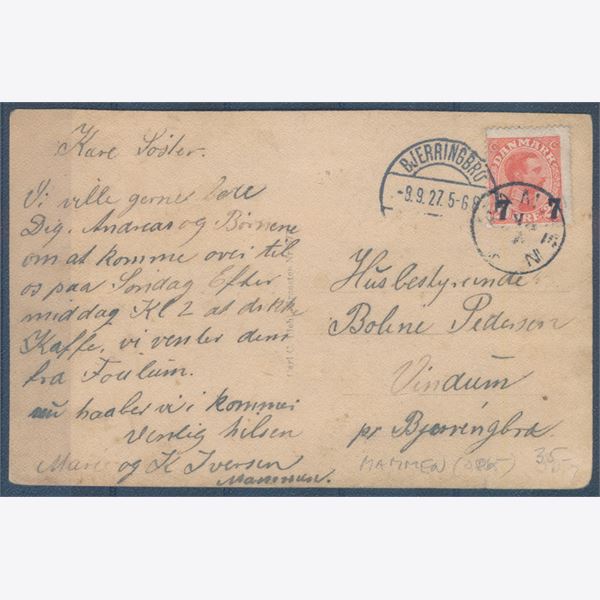 Kære Søster.
Vi ville gerne bede
Dig, Andreas og Børnene
om at komme over til
os paa Søndag Efter
middag Kl 2 at drikke
Kaffe, vi venter dem
fra Foulum.
nu haaber vi i kommer
Venlig hilsen
Marie og K Iversen
Mammen.
BJERRINGBRO
-8.9.27. 5-6
DANMARK
7 7
ØRE
Husbestyrinde
Bolene Pedersen
Vindum
pr Bjerringbro.
MAMMEN
35-